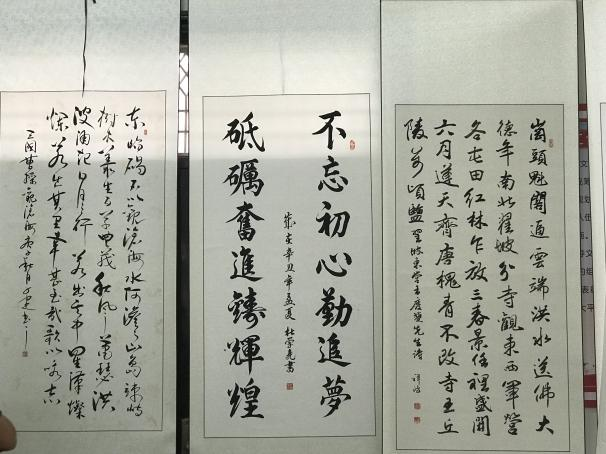 東臨碣石以觀滄海水何澹澹山島竦峙
樹木叢生百草豐茂秋風蕭瑟洪
波涌起日月之行若出其中星漢燦
爛若出其里幸甚至哉歌以咏志
三國曹操觀滄海
不忘初心勤追夢
砥礪奮進鑄輝煌
歲在辛丑年孟夏 杜學堯書
崗頭魁閣通雲端洪水送佛大
德年南北翟坡分寺觀東西軍營
各屯田紅林乍放三春景任裡盛開
六月蓮天齊唐槐青不改寺王丘
陵萬頃鹽
先生詩